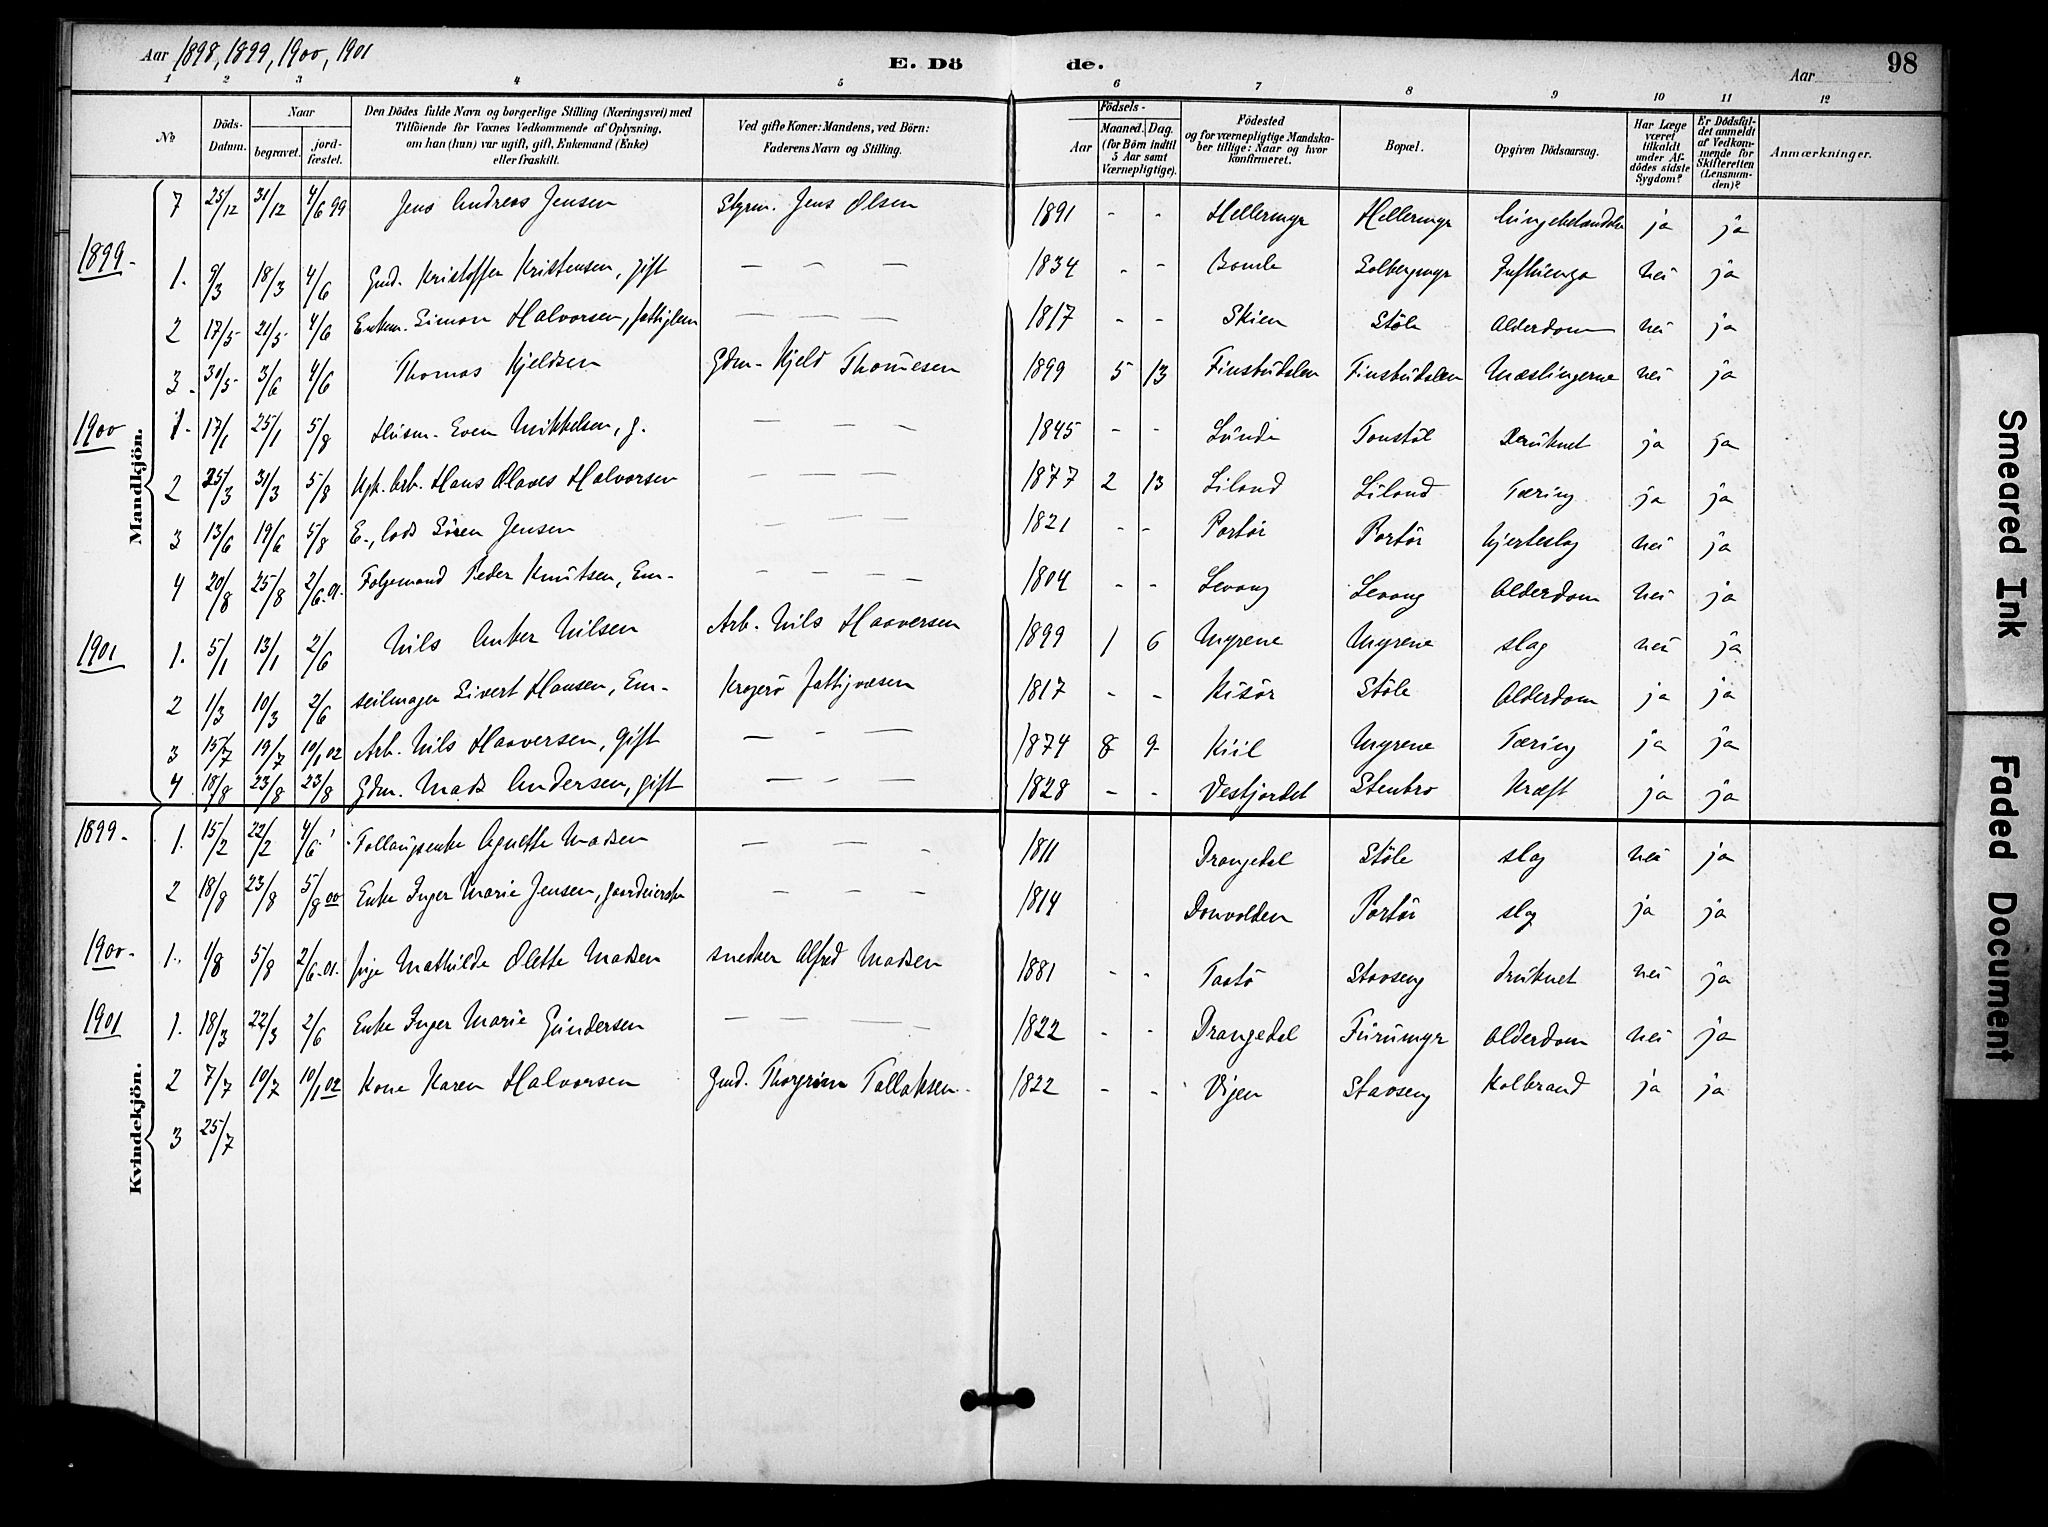 Aar 1898, 1899, 1900, 1901
E. Dö
de.
Aar
98
1 2 3 4 5 6 7 8 9 10 11 12
No
Döds-Datum.
Naar
begravet.
jord-fæstet.
Den Dödes fulde Navn og borgerlige Stilling (Næringsvei) med
Tilföiende for Voxnes Vedkommende af Oplysning,
om han (hun) var ugift, gift, Enkemand (Enke)
eller fraskilt.
Ved gifte Koner: Mandens, ved Börn:
Faderens Navn og Stilling.
Födsels-
Aar
Maaned. Dag.
(for Börn indtil
5 Aar samt
Værnepligtige).
Födested
og for værnepligtige Mandska-
ber tillige: Naar og hvor
konfirmeret.
Bopæl.
Opgiven Dödsaarsag.
Har Læge
været
tilkaldt
under Af-
dödes sidste
Sygdom?
Er Dödsfal-
det anmeldt
af Vedkom-
mende for
Skifteretten
(Lensman-
den)?
Anmærkninger.
Mandkjön.
7 25/12 31/12 4/6 99 Jens Andreas Jensen Styrm. Jens Olsen 1891 - - Hellermyr Hellermyr ja ja
1899-
1. 9/3 18/3 4/6 Gmd. Kristoffer Kristensen, gift — — — 1834 - - Bamle Solbergmyr Influenza nei ja
2 17/5 21/5 4/6 Enkm. Simon Halvorsen, fattiglem — — — 1817 - - Skien Stöle Alderdom nei ja
3. 31/5 3/6 4/6 Thomas Kjeldsen Gdm. Kjeld Thomesen 1899 5 13 Finsbudalen Finsbudalen Mæslingerne nei ja
1900
1. 17/1 25/1 5/8 Husm. Even Mikkelsen, g. — — — 1845 - - Lunde Tonstöl Druknet ja ja
2 25/3 31/3 5/8 Ugk. Arb. Hans Olaves Halvorsen — — — 1877 2 13 Liland Liland Tæring ja ja
3 13/6 19/6 5/8 E-, lods Sören Jensen — — — 1821 - - Portör Portör Hjerteslag nei ja
4 20/8 25/8 2/6-01. Folgemand Peder Knutsen, Em- — — — 1804 - - Levang Levang Alderdom nei ja
1901
1. 5/1 13/1 2/6 Nils Anker Nilsen Arb. Nils Haaversen 1899 1 6 Myrene Myrene slag nei ja
2 1/3 10/3 2/6 seilmager Sivert Hansen, Em- Kragerö Fattigvæsen 1817 - - Risör Stöle Alderdom ja ja
3 15/7 19/7 10/1 02 Arb. Nils Haaversen, gift — — — 1874 8 9 Kiil Myrene Tæring ja ja
4 18/8 23/8 23/8 Gdm. Mads Andersen, gift — — — 1828 - - Vestjordet Stenbro Kræft ja ja
Kvindekjön.
1899-
1. 15/2 22/2 4/6 Follaugsenke Agnette Madsen — — - 1811 Drangedal Stöle slag nei ja
2 18/8 23/8 5/8 00 Enke Inger Marie Jensen, gaardeierske — — — 1814 Portör slag ja ja
1900-
1. 1/8 5/8 2/6-01. pige Mathilde Olette Madsen snedker Alfred Madsen 1881 - - Taatö Stavseng druknet nei ja
1901
1. 18/3 22/3 2/6 Enke Inger Marie Gundersen — — — — 1822 - - Drangedal Furumyr Alderdom nei ja
2 7/7 10/7 10/1 02 Kone Karen Halvorsen Gmd. Thorgrim Tallaksen 1822 - - Stavseng Kolbrand ja ja
3 25/7
Smeared Ink
Faded Document